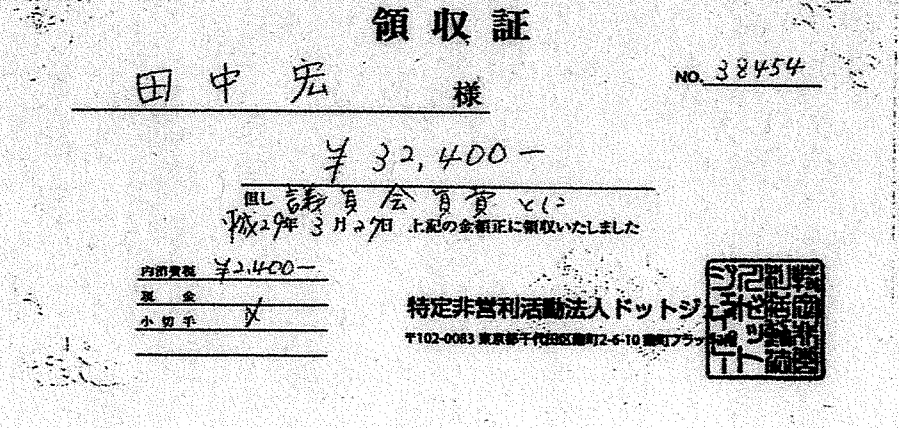 領収証
NO. 38454
田中宏 様
¥32,400-
但し 議員会員費として
平成29年3月27日 上記の金額正に領収いたしました
内消費税 ¥2,400-
現金
小切手
特定非営利活動法人ドットジェイピー
〒102-0083 東京都千代田区麹町2-6-10 麹町フラッツ